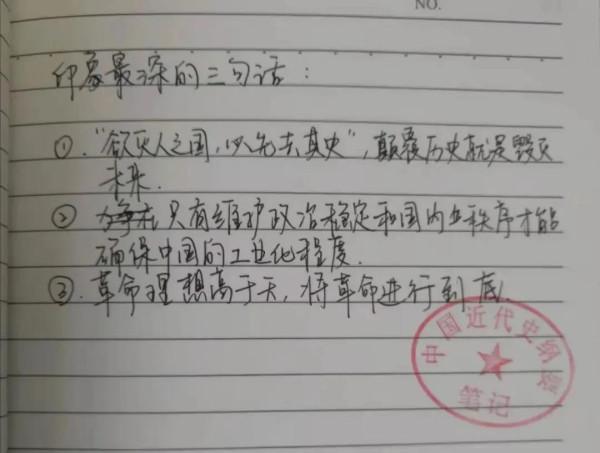 NO.
印象最深的三句话：
①."欲灭人之国，必先去其史"，颠覆历史就是毁灭
未来.
② 只有维护政治稳定和国内正秩序才能
确保中国的工业化程度.
③.革命理想高于天，将革命进行到底.
中国近代史纲要
笔记